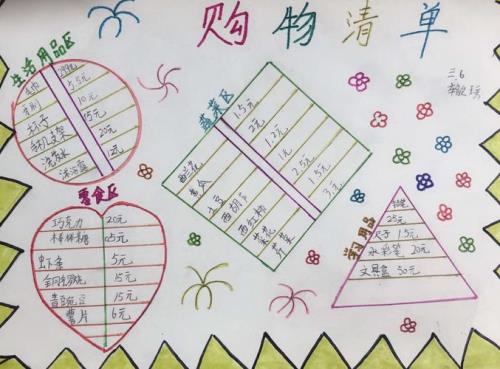 购物清单
三.6
生活用品区
毛巾
5.5元
牙刷 10元
杯子 15元
手机支架 20元
洗发水 12元
沐浴露
蔬菜区
1.5元
2元
1.2元
土豆 1元
西葫芦 2.5元
西红柿 1.5元
菜花 3元
芹菜
零食区
巧克力 20元
棒棒糖 0.5元
虾条 5元
15元
15元
薯片 6元
学习用品
25元
尺子 1.5元
水彩笔 20元
文具盒 50元